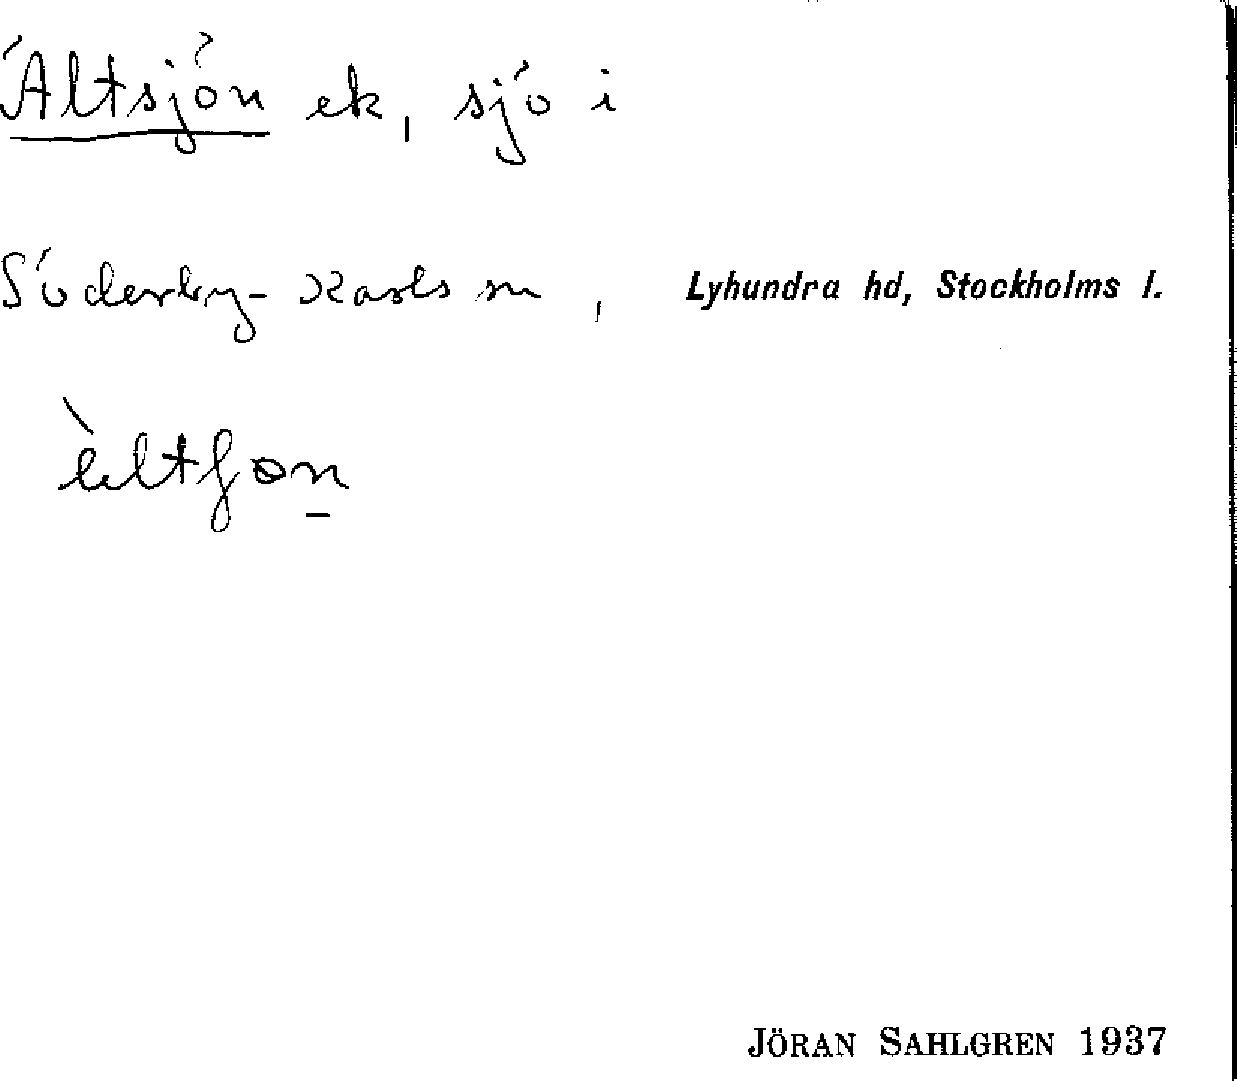 Ältsjön ek, sjö i
Söderby-Karls sn, Lyhundra hd, Stockholms l.
JÖRAN SAHLGREN 1937